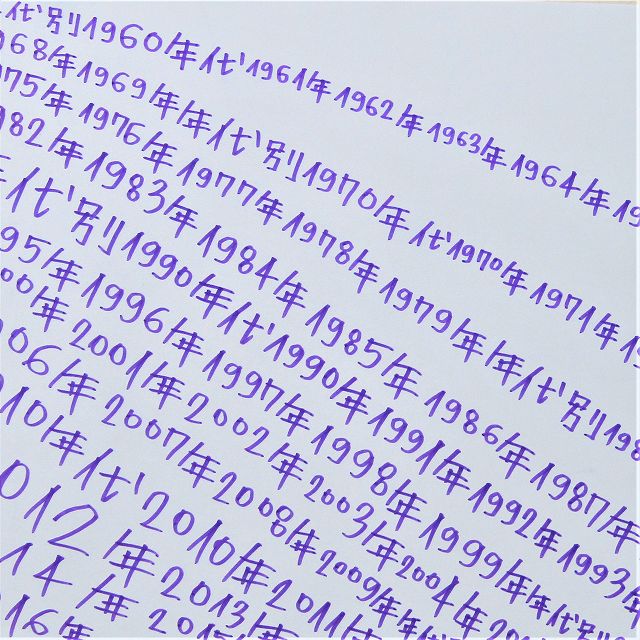 代別1960年代1961年1962年1963年1964年19
968年1969年年代別1970年代1970年1971年19
975年1976年1977年1978年1979年年代別198
982年1983年1984年1985年1986年1987年
年代別1990年代1990年1991年1992年1993年
995年1996年1997年1998年1999年年代別
00年2001年2002年2003年2004年20
006年2007年2008年2009年年代
010年代2010年2011年
012年2013年
14年2015
016年